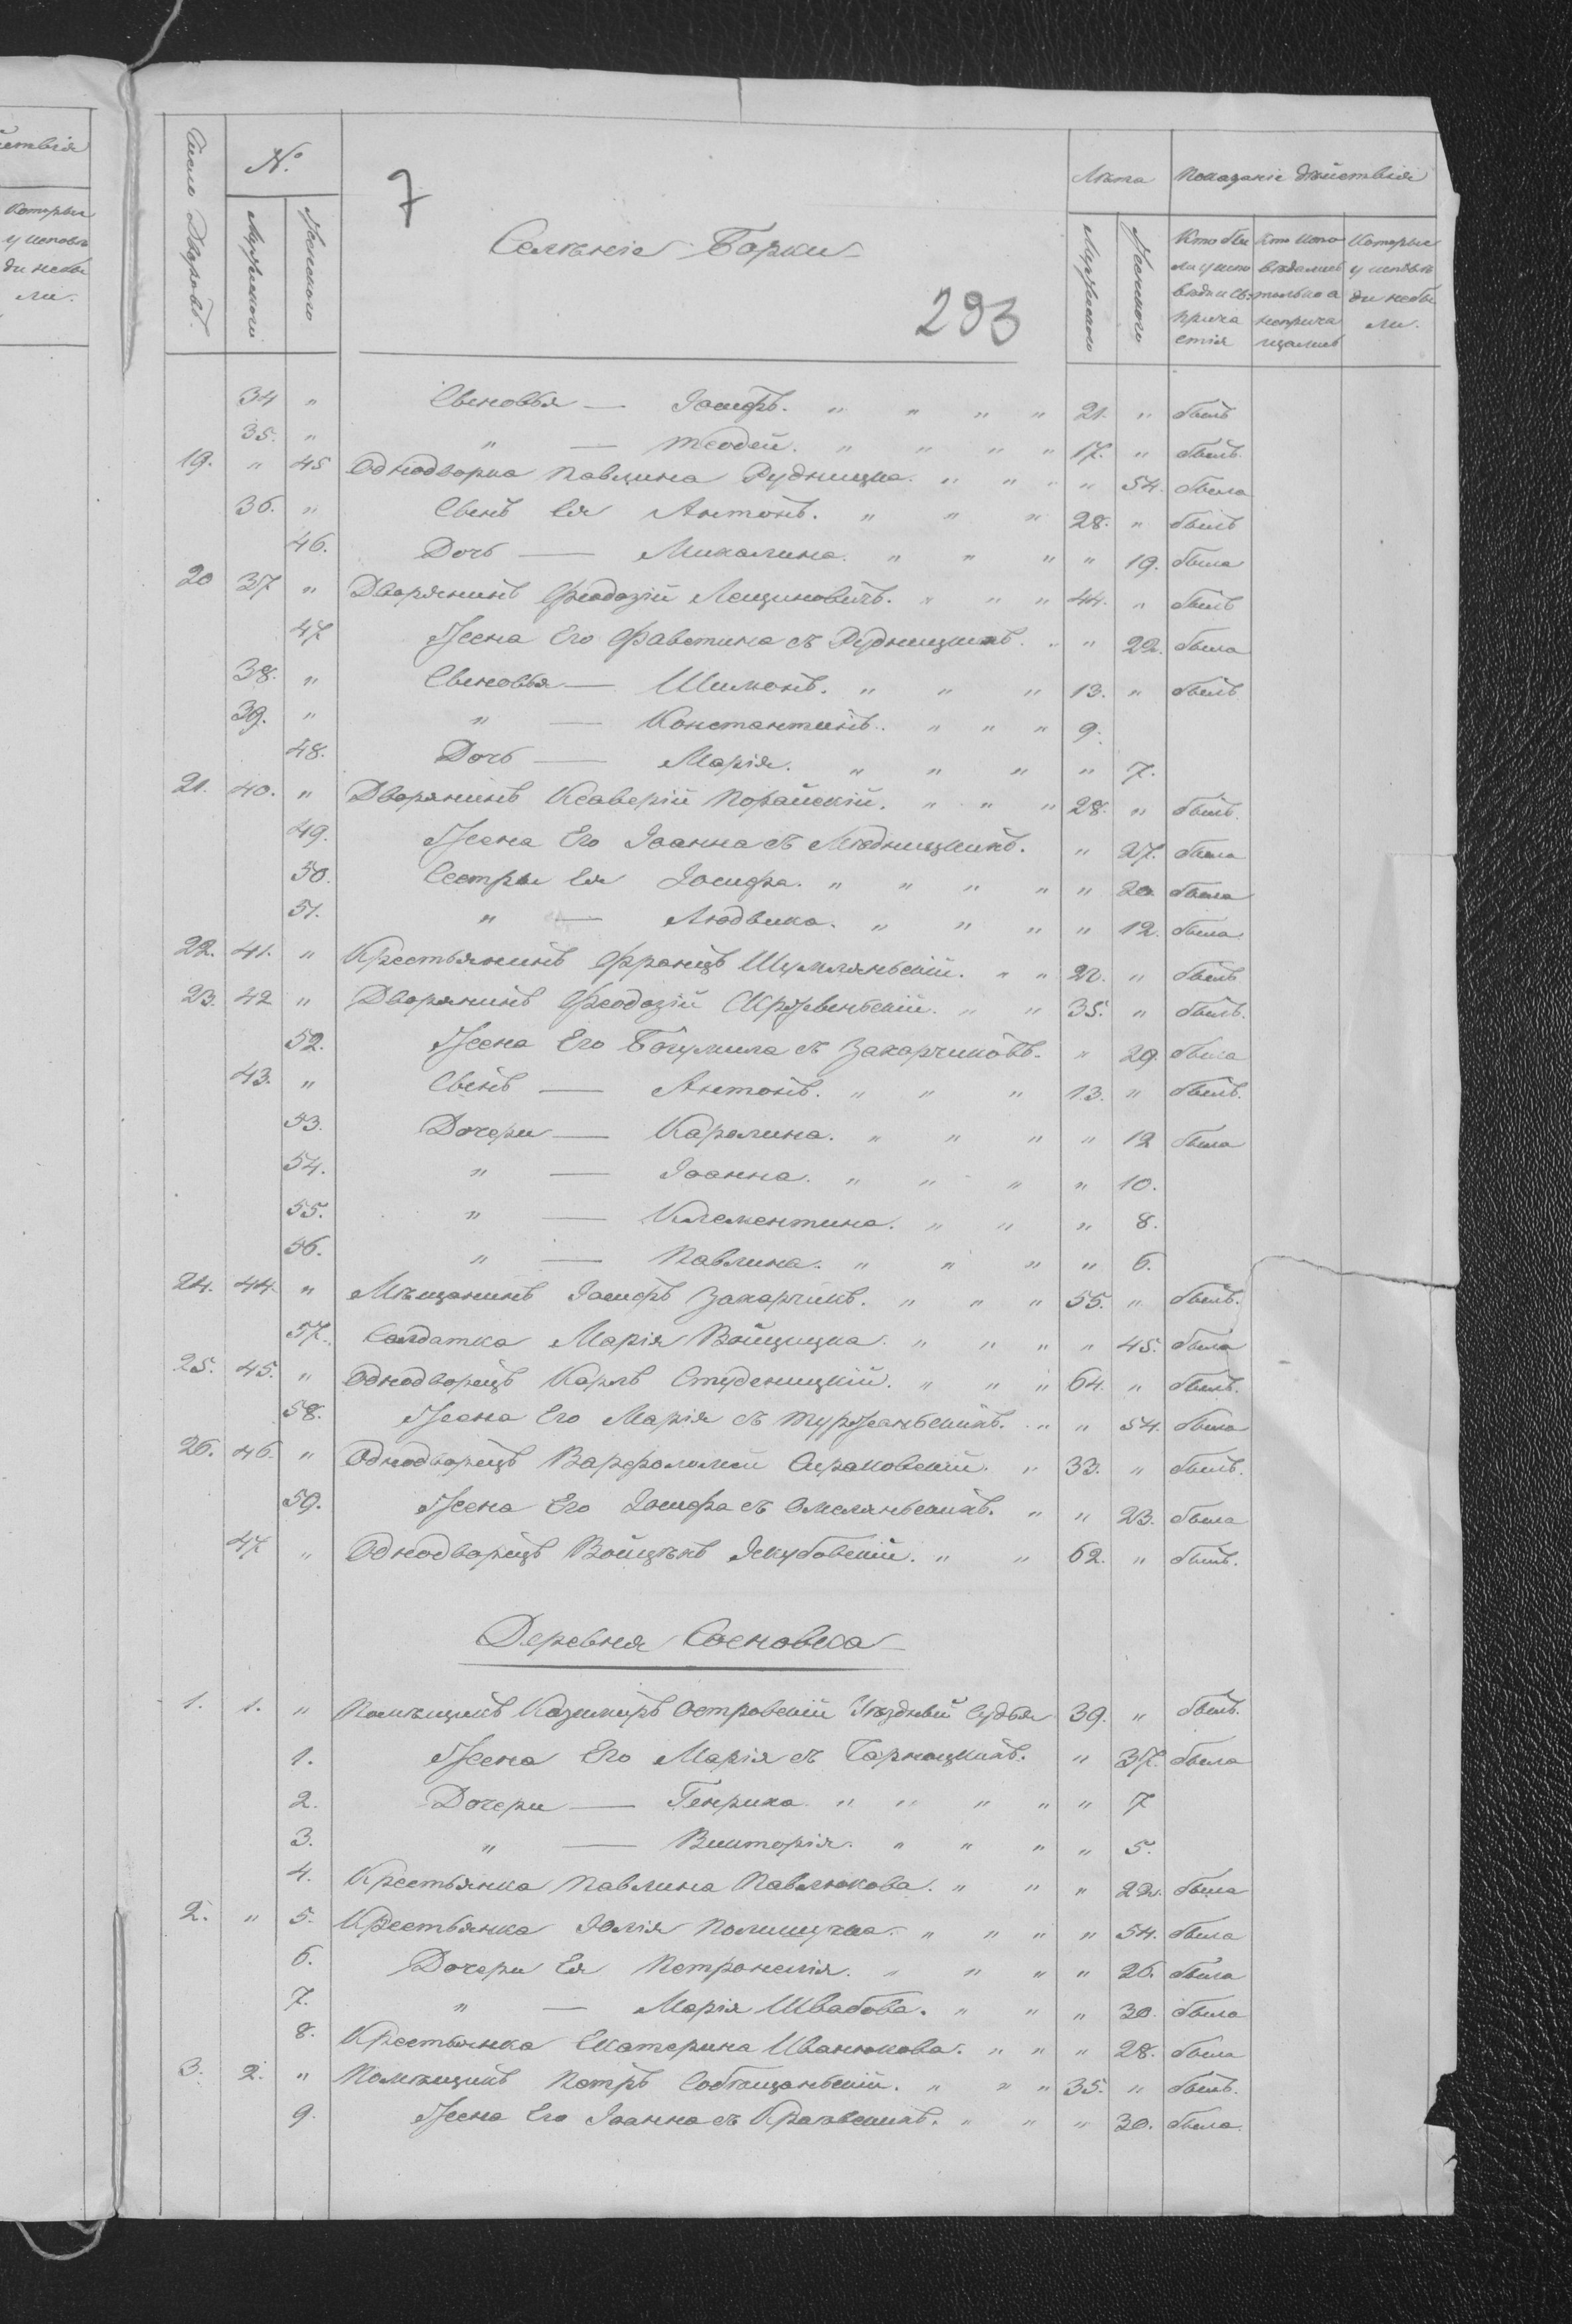 ствія
Которые
у исповѣ
ди небы
ли.
Число Дворовъ.
№.
Мужескаго
Женскаго
7
Селѣніе Борки
293
Лѣта
Показаніе дѣйствія
Мужескаго
Женскаго
Кто бы
ли у испо
вѣди и св.
прича
стія
Кто испо
вѣдались
только а
неприча
щались
Которые
у исповѣ
ди небы
ли.
34 " Сыновья — Іосифъ. " " " " 21. " былъ
35. " " — Теодей. " " " " 17. " былъ.
19. " 45 Однодворка Павлина Рудницка. " " " " 54. была
36. " Сынъ Ея Антонъ. " " " 28. " былъ
46. Дочь — Михалина. " " " " 19. была
20 37 " Дворянинъ Феодозій Лещиновичъ. " " " 44. " былъ
47 Жена Его Фавстина съ Рудницкихъ. " " 22. была
38. " Сыновья — Шимонъ. " " " 13. " былъ
39. " " — Константинъ. " " " 9.
48. Дочь — Марія. " " " " 7.
21. 40. " Дворянинъ Ксаверій Порайскій. " " " 28. " былъ.
49. Жена Его Іоанна съ Мѣдницкихъ. " 27. была
50. Сестры Ея Іосифа. " " " " " 20. была
51. " — Людвика. " " " " 12. была
22. 41. " Крестьянинъ Францъ Шумляньскій. " " 22. " былъ
23. 42 " Дворянинъ Феодозій Скржвеньскій. " " 35. " былъ.
52. Жена Его Богумила съ Захарчиковъ. " 29. была
43. " Сынъ — Антонъ. " " " 13. " былъ.
53. Дочери — Каролина. " " " " 12 была
54. " — Іоанна. " " " " 10.
55. " — Клементина. " " " 8.
56. " — Павлина. " " " " 6.
24. 44. " Мѣщанинъ Іосифъ Захарчикъ. " " " 55. " былъ.
57. Солдатка Марія Войцицка. " " " " 45. была
25. 45. " Однодворецъ Карлъ Студеницкій. " " " 64. " былъ.
58. Жена Его Марія съ Туржаньскихъ. " " 54. была
26. 46. " Однодворецъ Варфоломей Сераковскій. " 33. " былъ.
59. Жена Его Іосифа съ Омеляньскихъ. " " 23. была
47 " Однодворецъ Войцѣхъ Якубовскій. " " 62. " былъ.
Деревня Сосновка
1. 1. " Помѣщикъ Казимиръ Островскій Уѣздный Судья 39. " былъ.
1. Жена Его Марія съ Чарнецкихъ. " 37. была
2. Дочери — Генрика. " " " " " 7
3. " — Викторія. " " " " 5.
4. Крестьянка Павлина Павлюкова. " " " 22. была
2. " 5. Крестьянка Юлія Полищучка. " " " " 54. была
6. Дочери Ея Петронелія. " " " " 26. была
7. " — Марія Швабова. " " " 30. была
8. Крестьянка Екатерина Иванюкова. " " " 28. была
3. 2. " Помѣщикъ Петръ Собѣщаньскій. " " " 35. " былъ.
9. Жена Его Іоанна съ " " " 30. была.